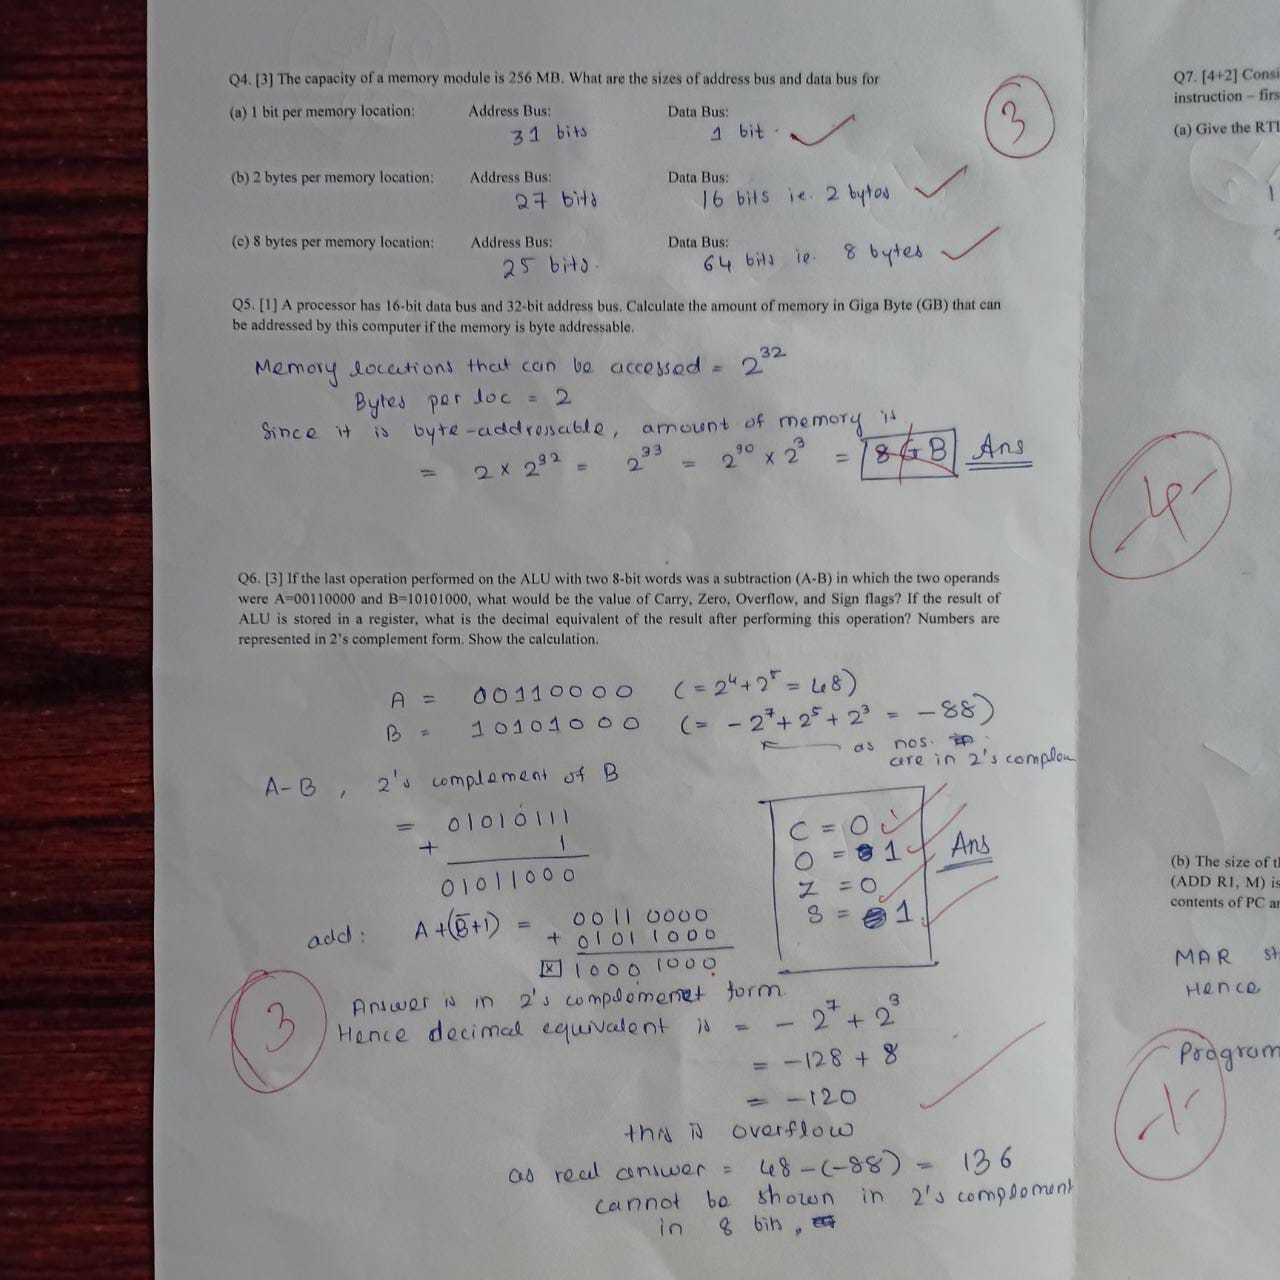 Q4. [3] The capacity of a memory module is 256 MB. What are the sizes of address bus and data bus for
(a) 1 bit per memory location: Address Bus: Data Bus:
31 bits 1 bit.
3
(b) 2 bytes per memory location: Address Bus: Data Bus:
27 bits 16 bits ie. 2 bytes
(c) 8 bytes per memory location: Address Bus: Data Bus:
25 bits. 64 bits ie. 8 bytes
Q5. [1] A processor has 16-bit data bus and 32-bit address bus. Calculate the amount of memory in Giga Byte (GB) that can
be addressed by this computer if the memory is byte addressable.
Memory locations that can be accessed = 2^32
Bytes per loc = 2
Since it is byte-addressable, amount of memory is
= 2 × 2^32 = 2^33 = 2^30 × 2^3 = 8 GB Ans
Q6. [3] If the last operation performed on the ALU with two 8-bit words was a subtraction (A-B) in which the two operands
were A=00110000 and B=10101000, what would be the value of Carry, Zero, Overflow, and Sign flags? If the result of
ALU is stored in a register, what is the decimal equivalent of the result after performing this operation? Numbers are
represented in 2's complement form. Show the calculation.
A = 00110000 (= 2^4+2^5 = 48)
B = 10101000 (= -2^7+2^5+2^3 = -88)
as nos.
are in 2's complem
A-B, 2's complement of B
= 01010111
+ 1
01011000
C = 0
O = 1
Z = 0
S = 1
Ans
add: A+(B̄+1) = 00110000
+ 01011000
x 10001000
Answer is in 2's complement form
Hence decimal equivalent is = -2^7 + 2^3
3
= -128 + 8
= -120
this is overflow
as real answer = 48-(-88) = 136
cannot be shown in 2's complement
in 8 bits.
Q7. [4+2] Consi
instruction – firs
(a) Give the RTL
1
4
(b) The size of th
(ADD R1, M) is
contents of PC an
MAR st
Hence
Program
1